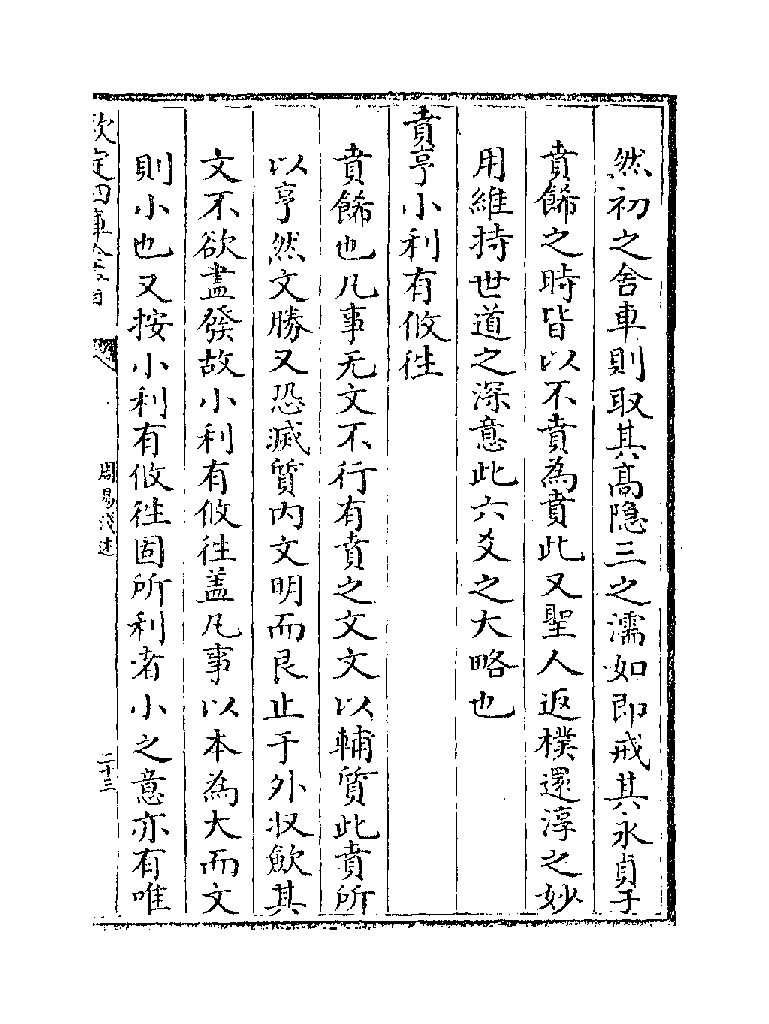 然初之舍車則取其髙隠三之濡如即戒其永貞于
賁餙之時皆以不賁為賁此又聖人返樸還淳之妙
用維持世道之深意此六爻之大略也
賁亨小利有攸徃
賁餙也凡事无文不行有賁之文文以輔質此賁所
以亨然文勝又恐滅質内文明而艮止于外収歛其
文不欲盡發故小利有攸徃盖凡事以本為大而文
則小也又按小利有攸徃固所利者小之意亦有唯
欽定四庫全書
周易淺述
二十三